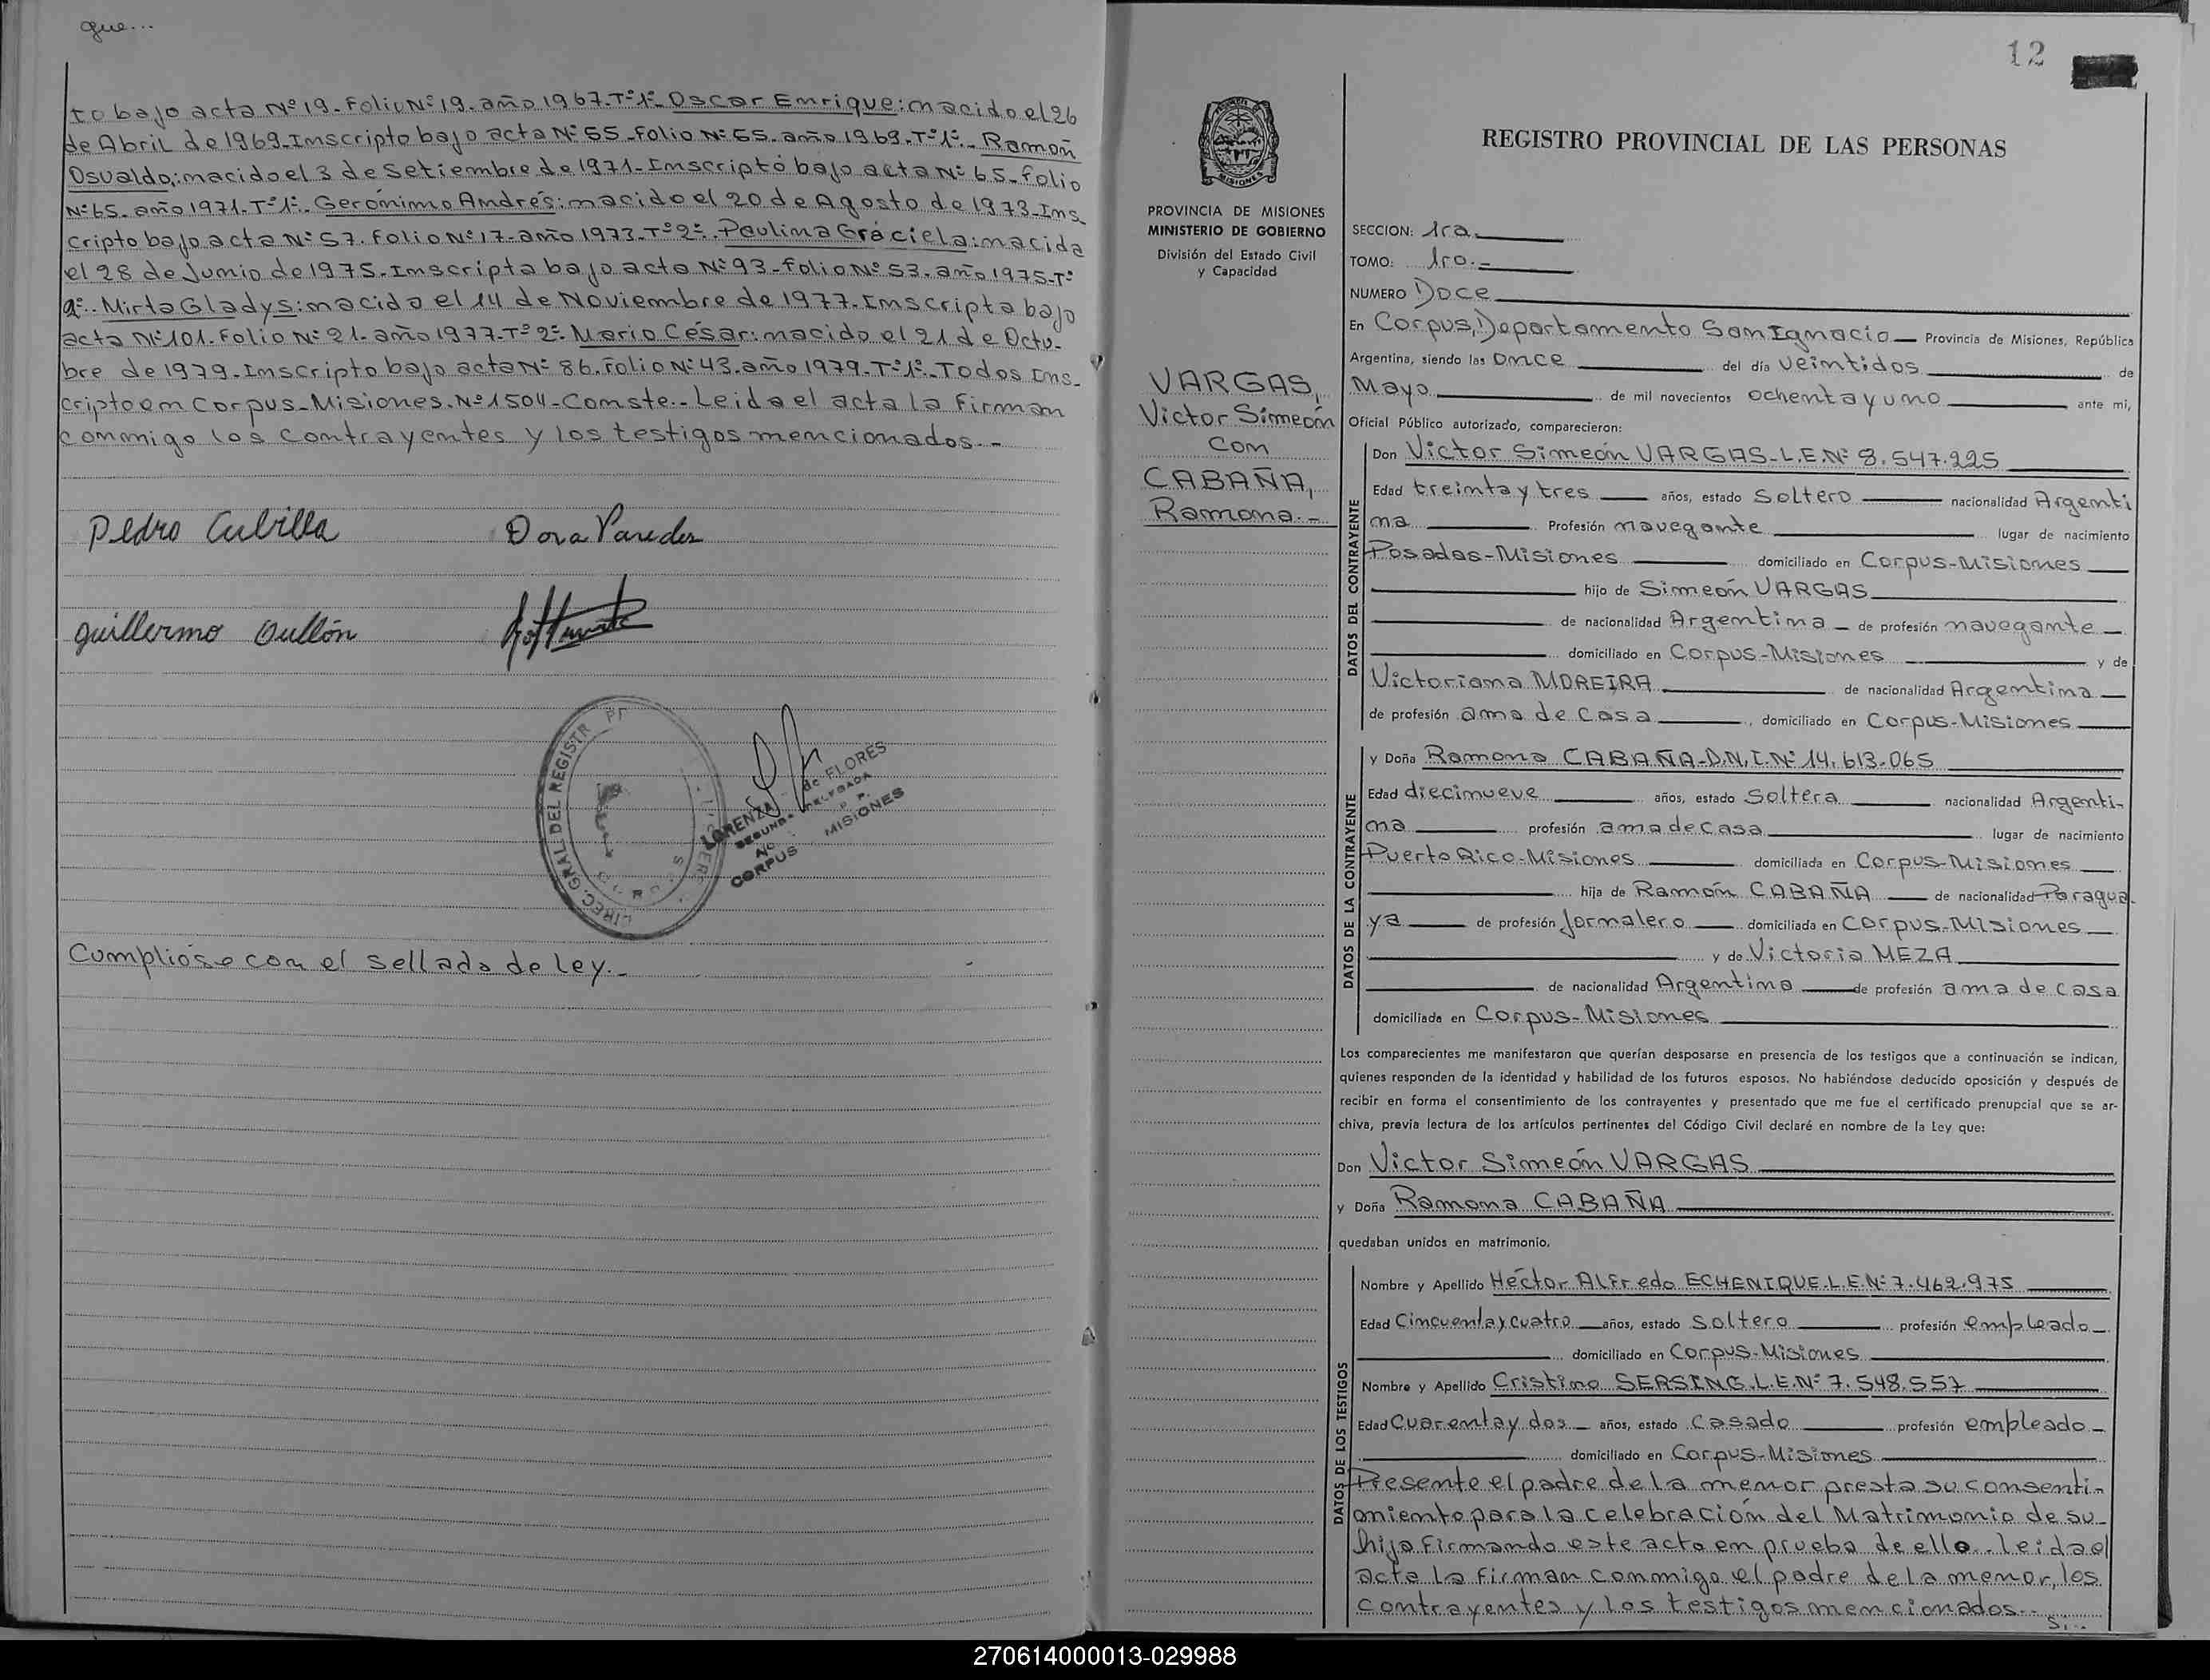 que...
to bajo acta Nº 19. Folio Nº 19. año 1967. Tº 1º. Oscar Enrique: nacido el 26
de Abril de 1969. Inscripto bajo acta Nº 55. Folio Nº 55. año 1969. Tº 1º. Ramón
Osvaldo: nacido el 3 de Setiembre de 1971. Inscripto bajo acta Nº 65. folio
Nº 65. año 1971. Tº 1º. Gerónimo Andrés: nacido el 20 de Agosto de 1973. Ins-
cripto bajo acta Nº 57. Folio Nº 17. año 1973. Tº 2º. Paulina Graciela: nacida
el 28 de Junio de 1975. Inscripta bajo acta Nº 93. Folio Nº 53. año 1975. Tº
2º. Mirta Gladys: nacida el 14 de Noviembre de 1977. Inscripta bajo
acta Nº 101. Folio Nº 21. año 1977. Tº 2º. Mario César: nacido el 21 de Octu-
bre de 1979. Inscripto bajo acta Nº 86. Folio Nº 43. año 1979. Tº 1º. Todos Ins-
cripto en Corpus-Misiones. Nº 1504. Conste.- Leida el acta la firman
conmigo los contrayentes y los testigos mencionados.-
Pedro Cubilla Dora Paredes
Guillermo Dullón
DIREC. GRAL DEL REGISTR
LORENZA de FLORES
DELEGADA
MISIONES
CORPUS
Cumplióse con el sellado de Ley.-
12
REGISTRO PROVINCIAL DE LAS PERSONAS
MISIONES
PROVINCIA DE MISIONES
MINISTERIO DE GOBIERNO
División del Estado Civil
y Capacidad
VARGAS,
Victor Simeón
con
CABAÑA,
Ramona.-
SECCION: 1ra.
TOMO: 1ro.-
NUMERO Doce
En Corpus, Departamento San Ignacio Provincia de Misiones, República
Argentina, siendo las once del día veintidos de
Mayo de mil novecientos ochenta y uno ante mi,
Oficial Público autorizado, comparecieron:
DATOS DEL CONTRAYENTE
Don Victor Simeón VARGAS-L.E.Nº 8.547.225
Edad treinta y tres años, estado soltero nacionalidad Argenti
na Profesión navegante lugar de nacimiento
Posadas-Misiones domiciliado en Corpus-Misiones
hijo de Simeón VARGAS
de nacionalidad Argentina de profesión navegante
domiciliado en Corpus-Misiones y de
Victoriana MOREIRA de nacionalidad Argentina
de profesión ama de casa, domiciliado en Corpus-Misiones
DATOS DE LA CONTRAYENTE
y Doña Ramona CABAÑA-D.N.I.Nº 14.613.065
Edad diecinueve años, estado soltera nacionalidad Argenti-
na profesión ama de casa lugar de nacimiento
Puerto Rico-Misiones domiciliada en Corpus-Misiones
hija de Ramón CABAÑA de nacionalidad Paragua
ya de profesión Jornalero domiciliada en Corpus-Misiones
y de Victoria MEZA
de nacionalidad Argentina de profesión ama de casa
domiciliada en Corpus-Misiones
Los comparecientes me manifestaron que querían desposarse en presencia de los testigos que a continuación se indican,
quienes responden de la identidad y habilidad de los futuros esposos. No habiéndose deducido oposición y después de
recibir en forma el consentimiento de los contrayentes y presentado que me fue el certificado prenupcial que se ar-
chiva, previa lectura de los artículos pertinentes del Código Civil declaré en nombre de la Ley que:
Don Victor Simeón VARGAS
y Doña Ramona CABAÑA
quedaban unidos en matrimonio.
DATOS DE LOS TESTIGOS
Nombre y Apellido Héctor Alfredo ECHENIQUE-L.E.Nº 7.462.975
Edad Cincuenta y cuatro años, estado soltero profesión empleado
domiciliado en Corpus-Misiones
Nombre y Apellido Cristino SERSING L.E.Nº 7.548.557
Edad Cuarenta y dos años, estado casado profesión empleado
domiciliado en Corpus-Misiones
Presente el padre de la menor presta su consenti-
miento para la celebración del Matrimonio de su
hija firmando este acta en prueba de ello. Leida el
acta la firman conmigo el padre de la menor, los
contrayentes y los testigos mencionados.-
S...
270614000013-029988